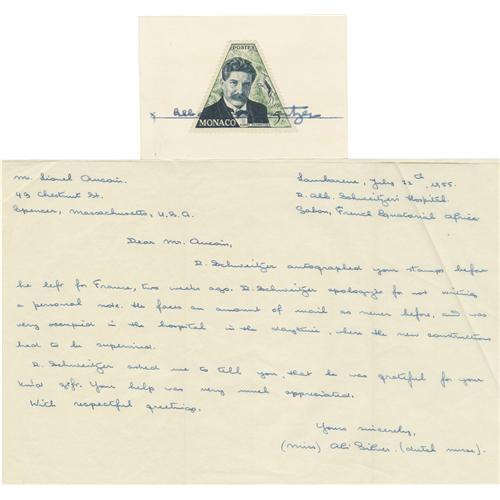 POSTES
MONACO
Mr. Lionel Aucoin.
49 Chestnut St.
Spencer, Masachusetts, U.S.A.
Lambarene, July 22th, 1955.
D. Alb. Schweitzer's Hospital.
Gabon, French Equatorial Africa
Dear Mr. Aucoin,
D. Schweitzer autographed your stamps before
he left for France, two weeks ago. D. Schweitzer apologizes for not writing
a personal note. He faces an amount of mail as never before, and was
very occupied in the hospital in the daytime, where the new construction
had to be supervised.
D. Schweitzer asked me to tell you, that he was grateful for your
kind gift. Your help was very much appreciated.
With respectful greetings.
Yours sincerely,
(Miss) Ali Silver. (dutch nurse).